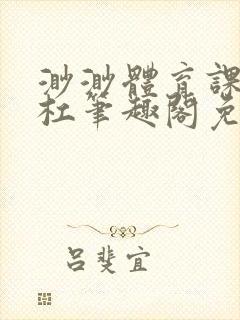 渺渺體育課
杜筆趣閣免
呂斐宜